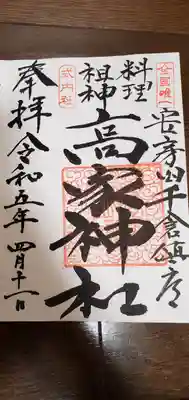 全国唯一
安房国千倉鎮座
料理
祖神
式内社
高家神社
奉拝 令和五年 四月十一日